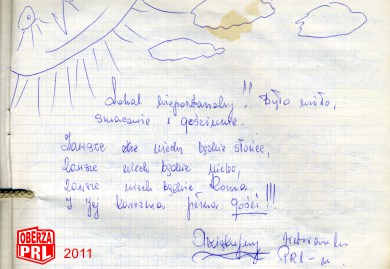 Lokal niepowtarzalny!! Było miło,
smacznie i gościnnie.
Zawsze niech będzie słońce,
Zawsze niech będzie niebo,
Zawsze niech będzie
I Jej karczma pełna gości!!!
Dziękujemy
PRL-u
OBERŻA
PRL
2011